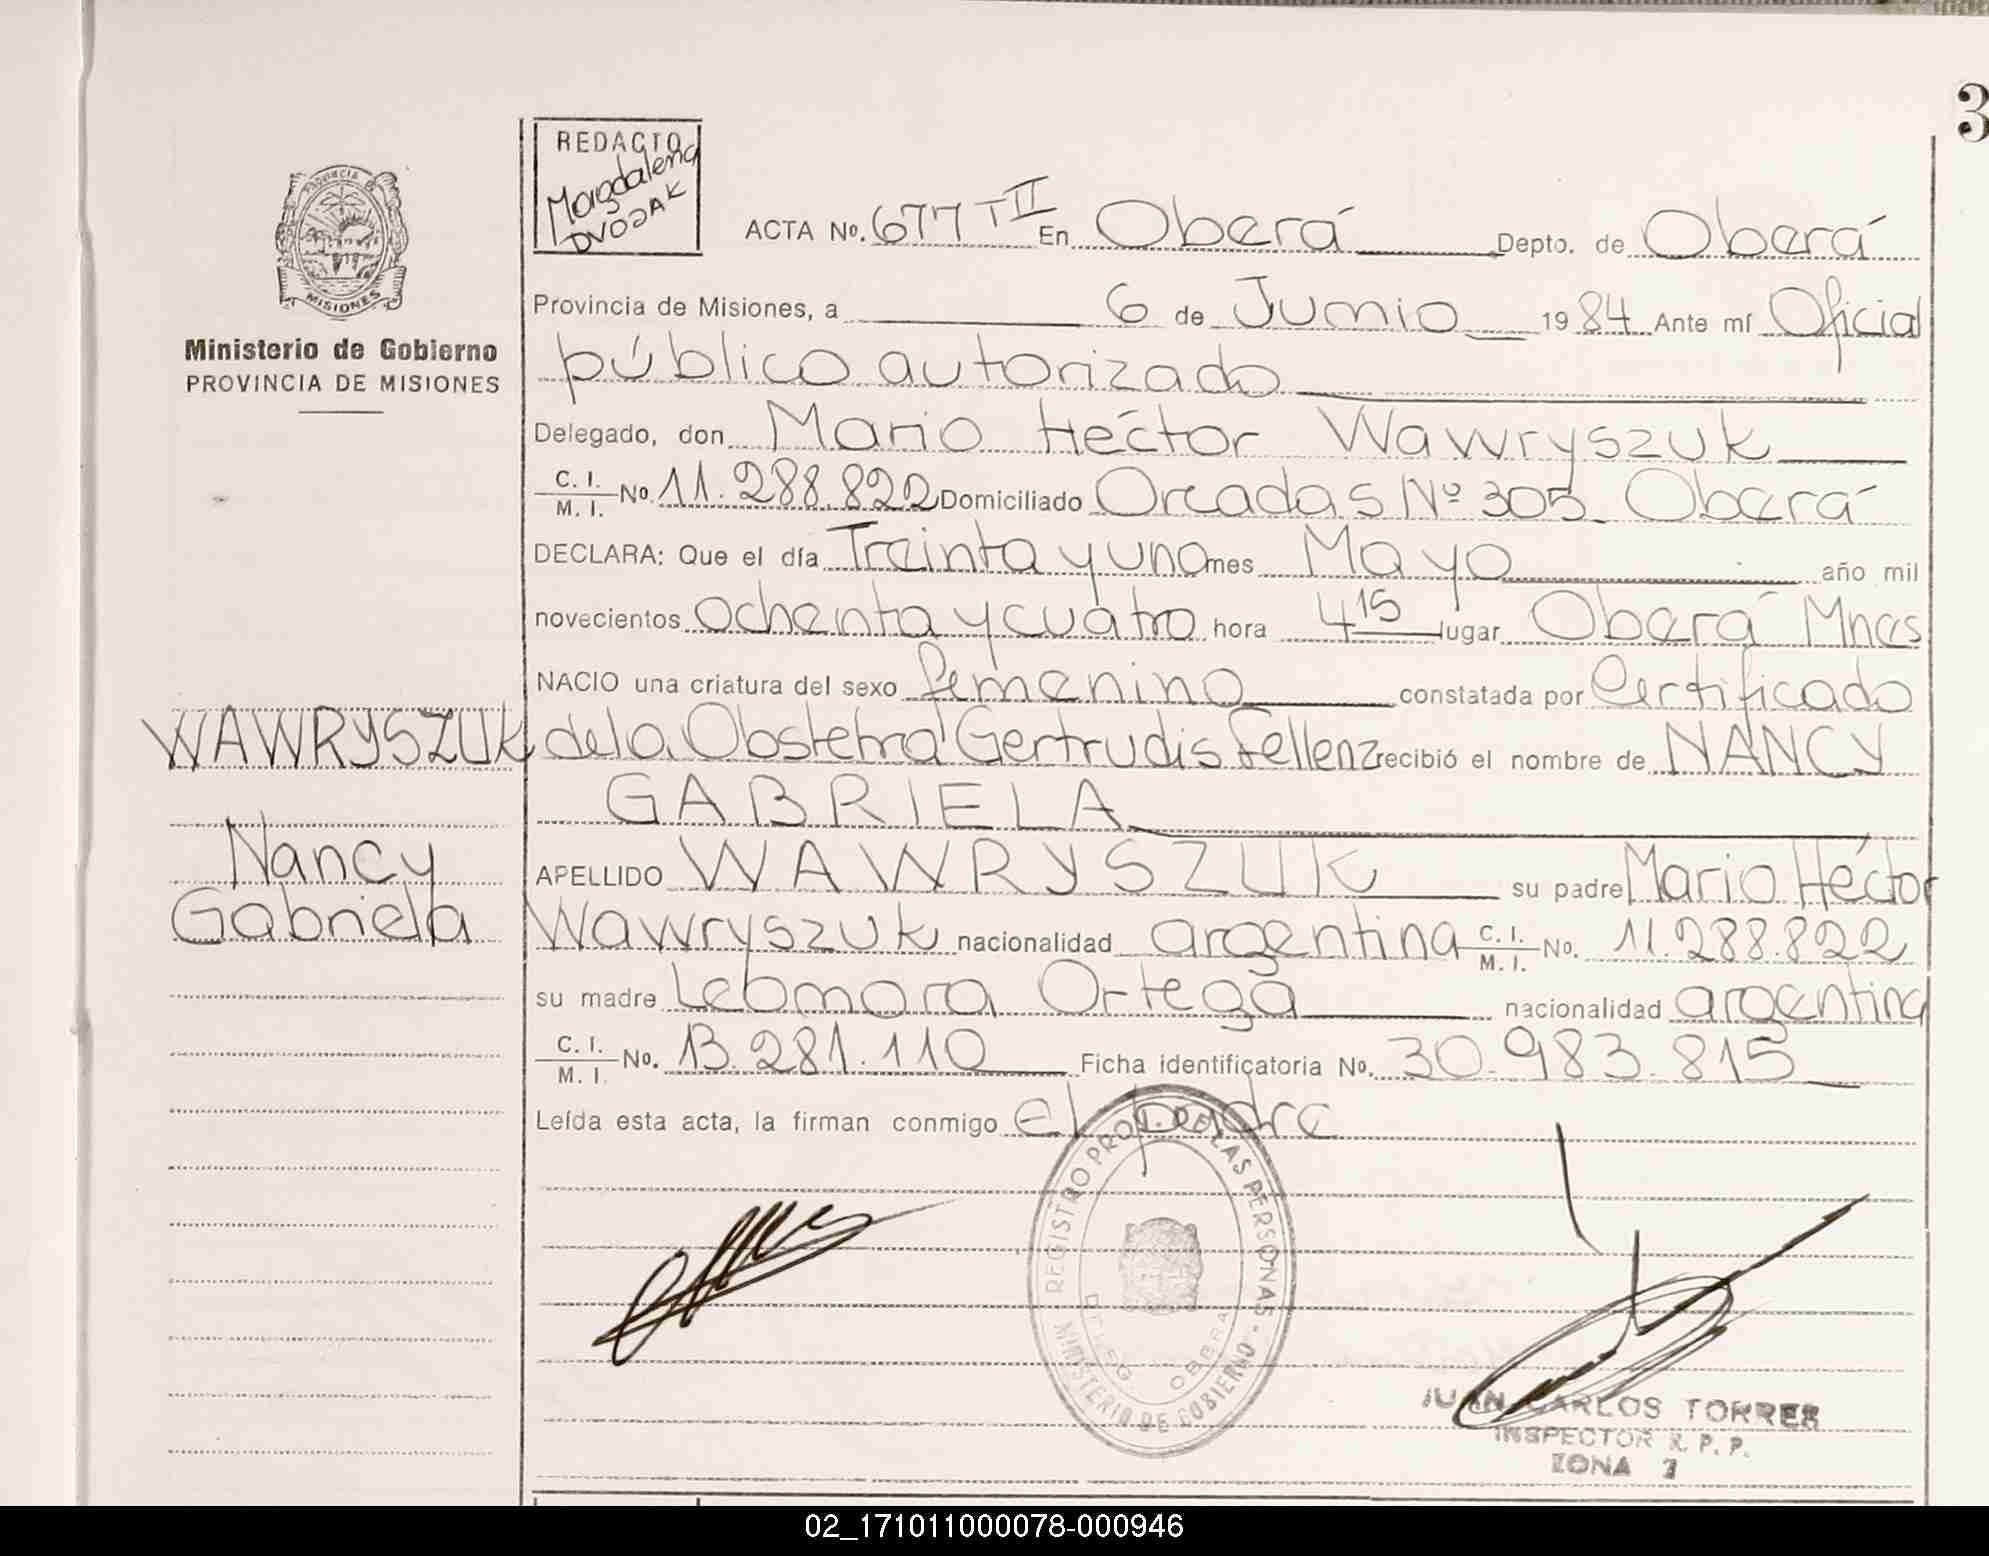 3
REDACTO
Magdalena
DVOJAK
PROVINCIA DE
MISIONES
Ministerio de Gobierno
PROVINCIA DE MISIONES
ACTA No. 677 T II En Oberá Depto. de Oberá
Provincia de Misiones, a 6 de Junio 1984 Ante mí Oficial
público autorizado
Delegado, don Mario Héctor Wawryszuk
C. I. / M. I. No. 11.288.822 Domiciliado Orcadas Nº 305 Oberá
DECLARA: Que el día Treinta y uno mes Mayo año mil
novecientos ochenta y cuatro hora 4 15 lugar Oberá Mnes
NACIO una criatura del sexo femenino constatada por Certificado
de la Obstetra Gertrudis Fellenz recibió el nombre de NANCY
GABRIELA
APELLIDO WAWRYSZUK su padre Mario Héctor
Wawryszuk nacionalidad argentina C. I. / M. I. No. 11.288.822
su madre Lebmora Ortega nacionalidad argentina
C. I. / M. I. No. 13.281.110 Ficha identificatoria No. 30.983.815
Leída esta acta, la firman conmigo el padre
WAWRYSZUK
Nancy
Gabriela
REGISTRO PROV. DE LAS PERSONAS - MINISTERIO DE GOBIERNO
JUAN CARLOS TORRES
INSPECTOR R. P. P.
ZONA
02_171011000078-000946